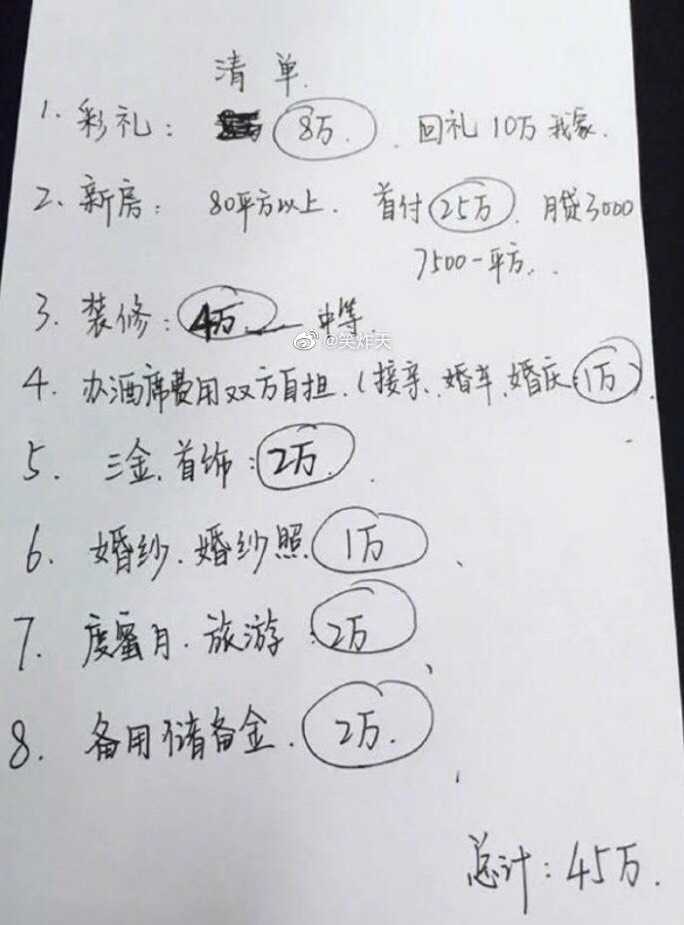 清单.
1. 彩礼: 8万. 回礼10万我家.
2. 新房: 80平方以上. 首付25万. 月贷3000
7500一平方..
3. 装修: 4万 中等.
@笑炸天
4. 办酒席费用双方自担.(接亲、婚车、婚庆:1万).
5. 三金.首饰:2万.
6. 婚纱.婚纱照.1万
7. 度蜜月.旅游:2万
8. 备用储备金.2万.
总计:45万.